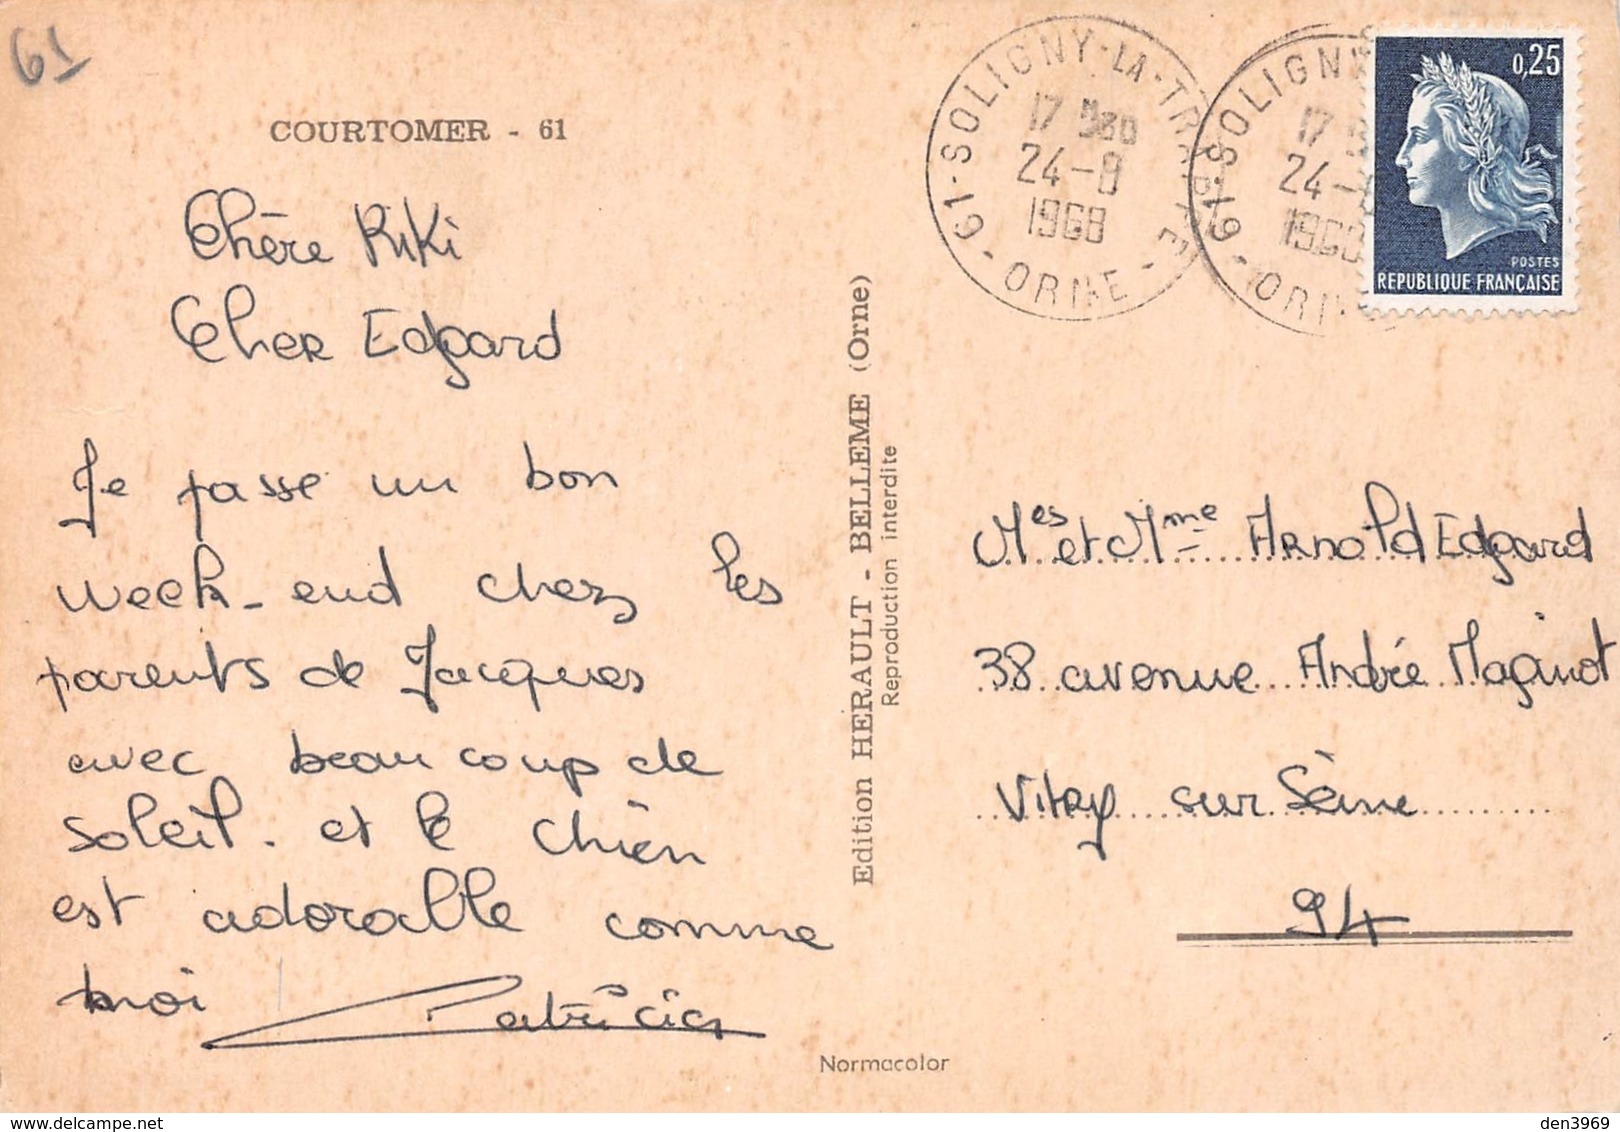 61
COURTOMER - 61
Chère Kiki
Cher Edgard
Je passe un bon
week-end chez les
parents de Jacques
avec beaucoup de
soleil. et le chien
est adorable comme
moi
Patricia
Edition HERAULT - BELLEME (Orne)
Reproduction interdite
Normacolor
61-SOLIGNY-LA-TRAPPE
17 H30
24-8
1968
-ORNE-
61-SOLIGNY
17
24-8
1968
-ORNE
0,25
POSTES
REPUBLIQUE FRANÇAISE
Mes et Mme Arnold Edgard
38 avenue André Maginot
Vitry sur Seine
94
den3969